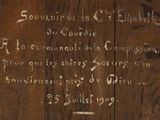 Souvenir de la Ctesse Elisabeth
du Couëdic
A la communauté de la Compassion
pour que les chères Soeurs s'en
souviennent près de Dieu
25 Juillet 1909.